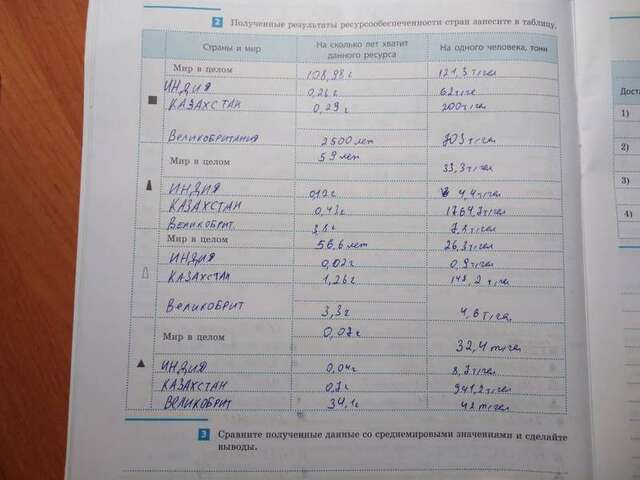 2 Полученные результаты ресурсообеспеченности стран занесите в таблицу.
Страны и мир На сколько лет хватит данного ресурса На одного человека, тонн
Мир в целом 108,98 г 121,3 т/чел
ИНДИЯ 0,26 г 62 т/че
КАЗАХСТАН 0,29 г 200 т/чел
ВЕЛИКОБРИТАНИЯ 2500 лет 703 т/чел
Мир в целом 59 лет 33,3 т/чел
ИНДИЯ 4,4 т/чел
КАЗАХСТАН 0,43 г
ВЕЛИКОБРИТ.
Мир в целом 56,6 лет 26,3 т/чел
ИНДИЯ 0,02 г 0,9 т/чел
КАЗАХСТАН 1,26 г 148,2 т/чел
ВЕЛИКОБРИТ 3,3 г 4,6 т/чел
Мир в целом 32,4 т/чел
ИНДИЯ 0,04 г
КАЗАХСТАН 941,2 т/чел
ВЕЛИКОБРИТ 34,1 г 42 т/чел
3 Сравните полученные данные со среднемировыми значениями и сделайте
выводы.
Доста
1)
2)
3)
4)